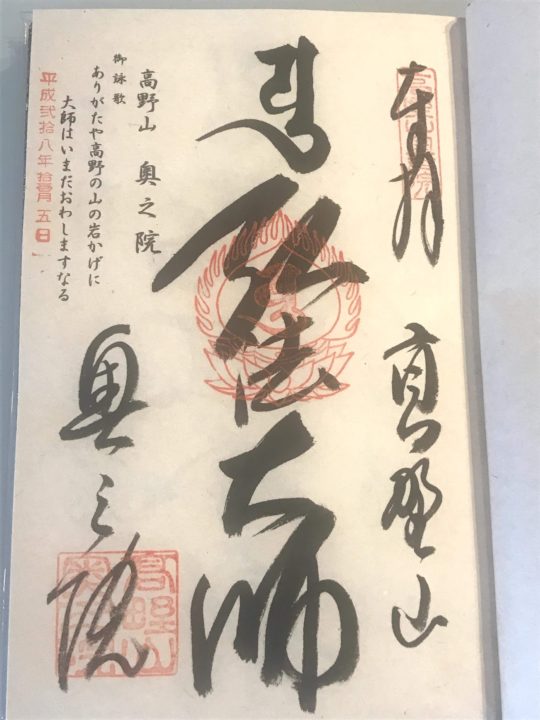 奉拝
高野山
弘法大師
奥之院
高野山 奥之院
御詠歌
ありがたや高野の山の岩かげに
大師はいまだおわしますなる
平成弐拾八年拾弐月五日